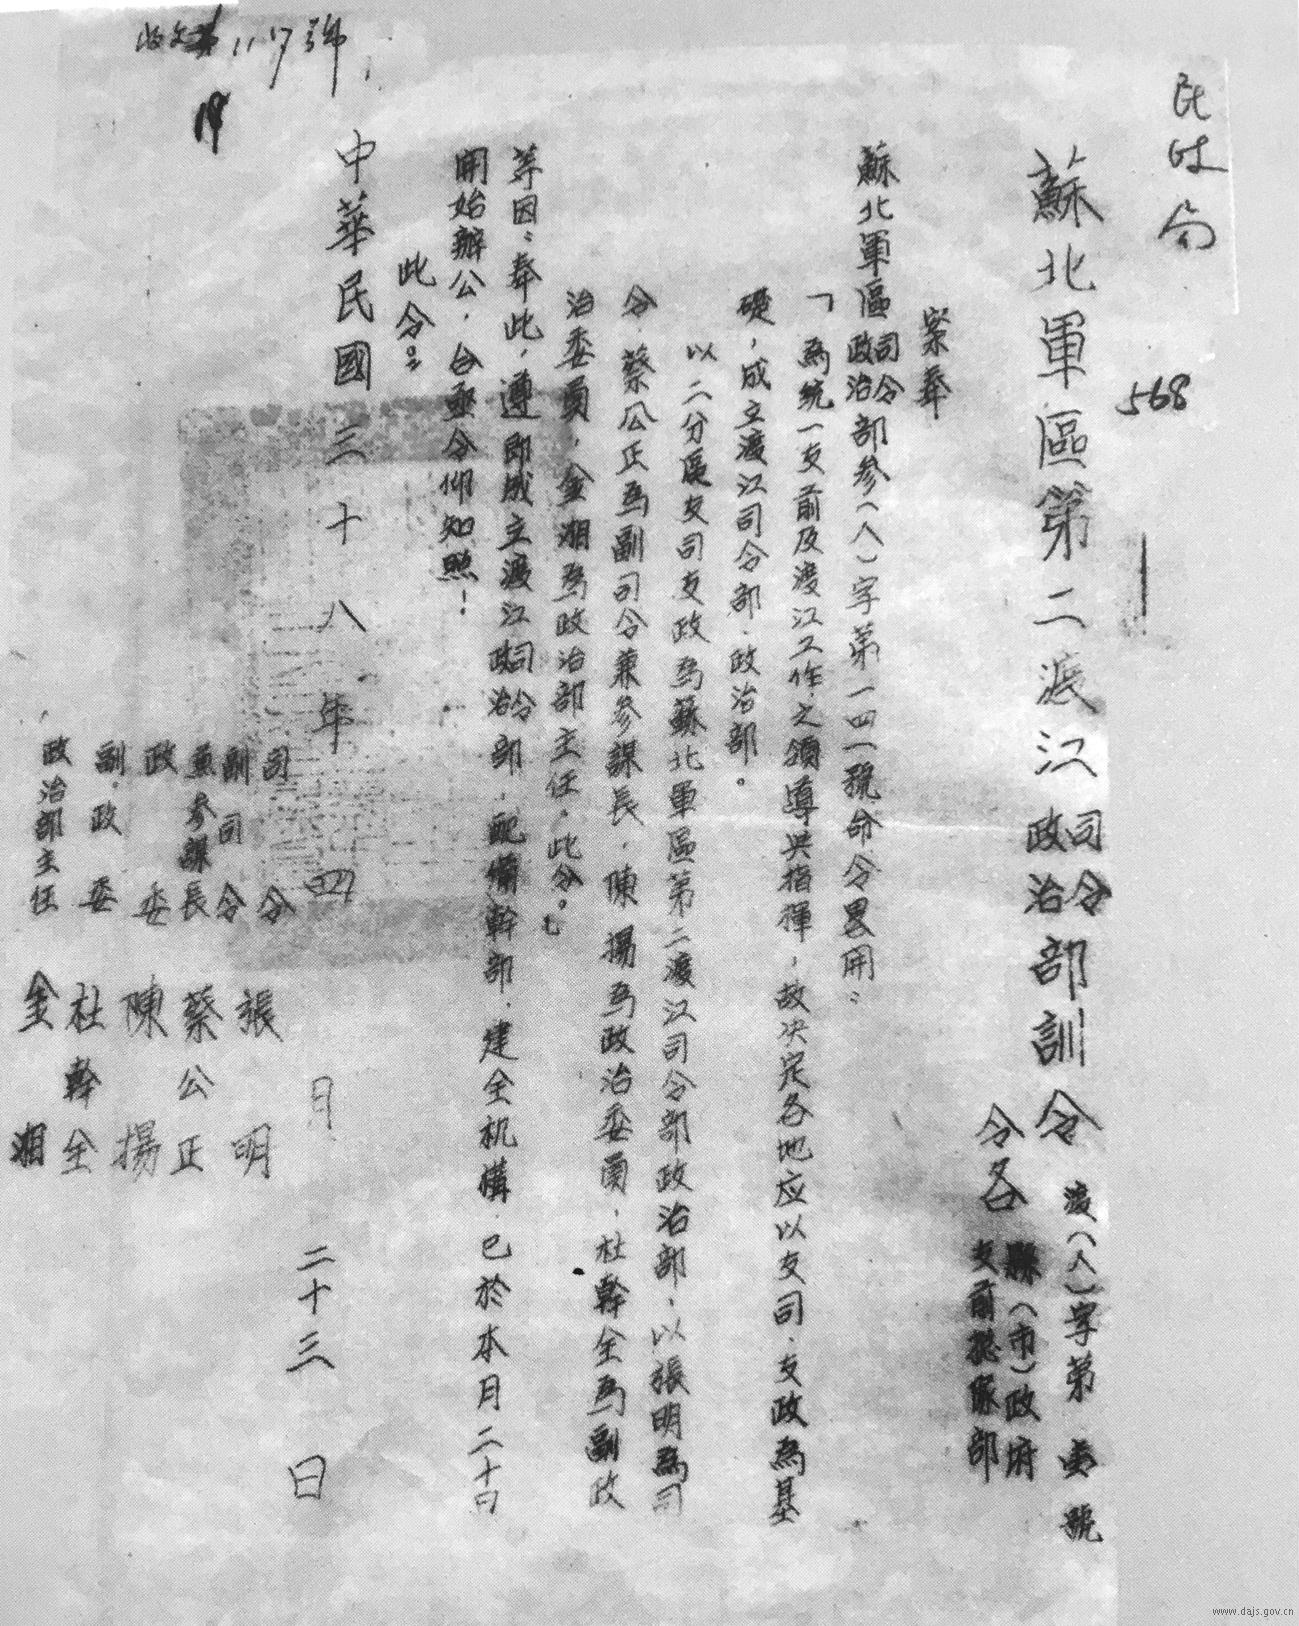 民政局
568
蘇北軍區第二渡江司令政治部訓令
渡(人)字第壹號
令各縣(市)政府
支前總隊部
案奉
蘇北軍區司令政治部參(人)字第一四一號命令畧開:
「為統一支前及渡江工作之領導與指揮,故决定各地应以支司、支政為基
礎,成立渡江司令部、政治部。
以二分區支司支政為蘇北軍區第二渡江司令部政治部,以張明為司
令,蔡公正為副司令兼參謀長,陳揚為政治委員,杜幹全為副政
治委員,金湘為政治部主任,此令。」
等因:奉此,遵即成立渡江司令政治部,配備幹部,建全机構,已於本月二十日
開始辦公,合亟令仰知照!
此令。
中華民國三十八年四月二十三日
司令 張明
副司令兼參謀長 蔡公正
政委 陳揚
副政委 杜幹全
政治部主任 金湘
收文第1117號
www.dajs.gov.cn